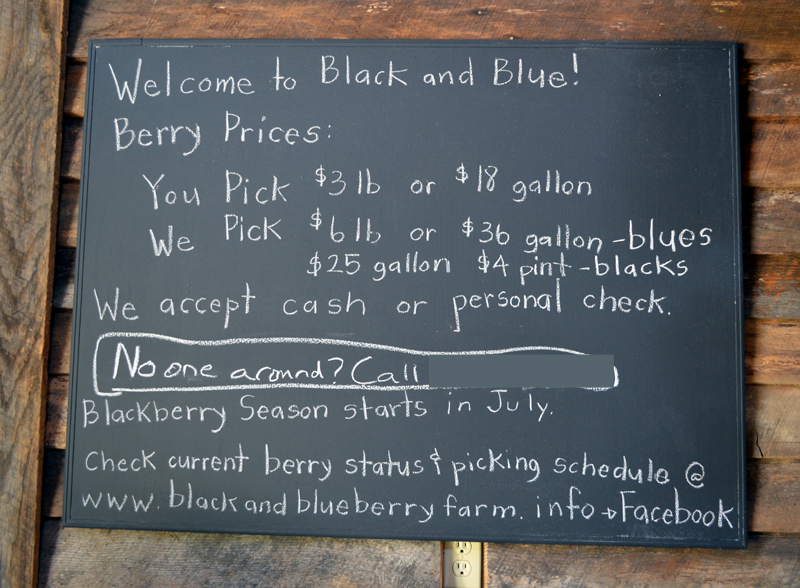 Welcome to Black and Blue!
Berry Prices:
You Pick $3 lb or $18 gallon
We Pick $6 lb or $36 gallon - blues
$25 gallon $4 pint - blacks
We accept cash or personal check.
No one around? Call
Blackberry Season starts in July.
Check current berry status & picking schedule @
www.blackandblueberryfarm.info → Facebook